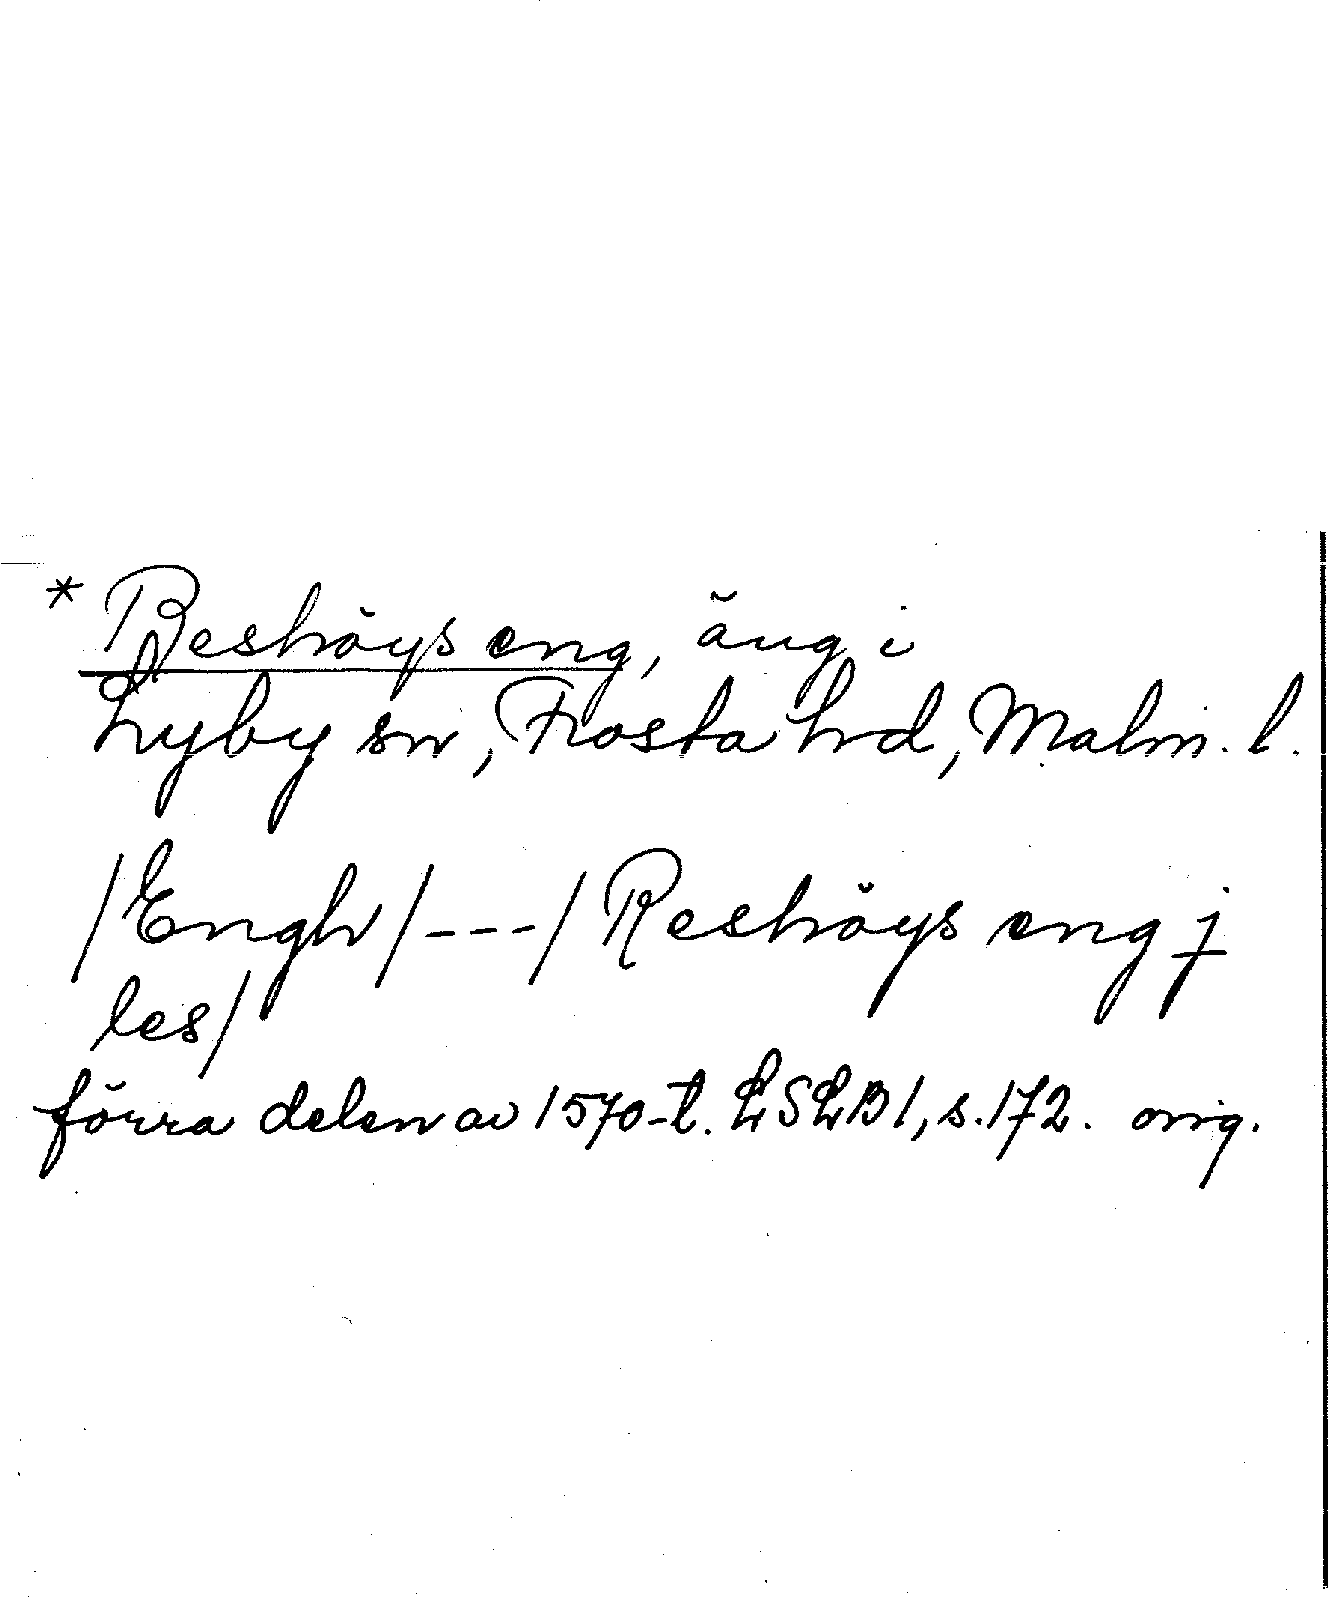 * Beshöys eng, äng i
Lyby sn, Frosta hd, Malm. l.
/Engh/---/ Reshöys eng j
les/
förra delen av 1570-t. LSLB1, s.172. orig.